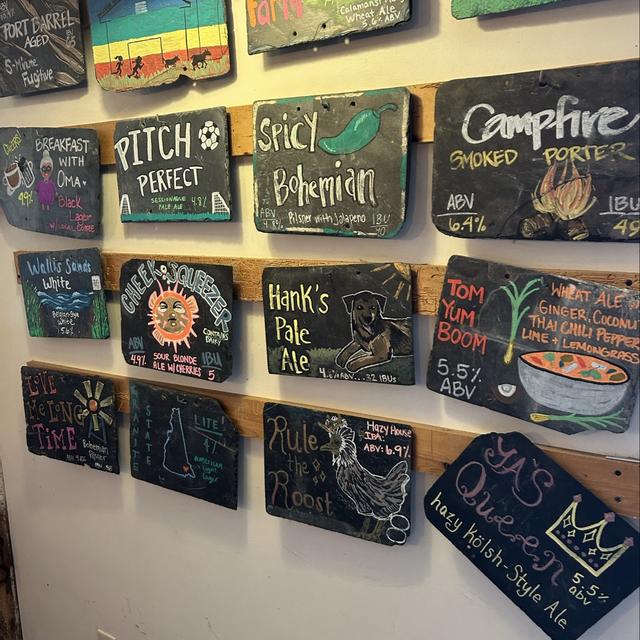 PORT BARREL
AGED
5-Minute
Fugitive
Farm
Calamansi
Wheat Ale
5.6% ABV
BREAKFAST
WITH
OMA
Black
Lager
4.9%
PITCH
PERFECT
SESSIONABLE 4.8%
PALE ALE
Spicy
Bohemian
Pilsner with Jalapeño
ABV
IBU
Campfire
SMOKED PORTER
ABV
6.4%
IBU
49
Wallis Sands
White
White
5.6%
CHEEK SQUEEZER
CONTAINS
DAIRY
ABV
4.9%
SOUR BLONDE
ALE W/ CHERRIES
IBU
5
Hank's
Pale
Ale
ABV... 32 IBUs
TOM
YUM
BOOM
5.5%
ABV
WHEAT ALE
GINGER, COCONUT
THAI CHILI PEPPER
LIME + LEMONGRASS
LOVE
Me LONG
TIME
Bohemian
Pilsner
GRANITE
STATE
LITE!
4%
American
Light
Lager
Rule
the
Roost
Hazy House
IPA:
ABV: 6.9%
YA'S
Queen
hazy Kölsh-Style Ale
5.5%
abv